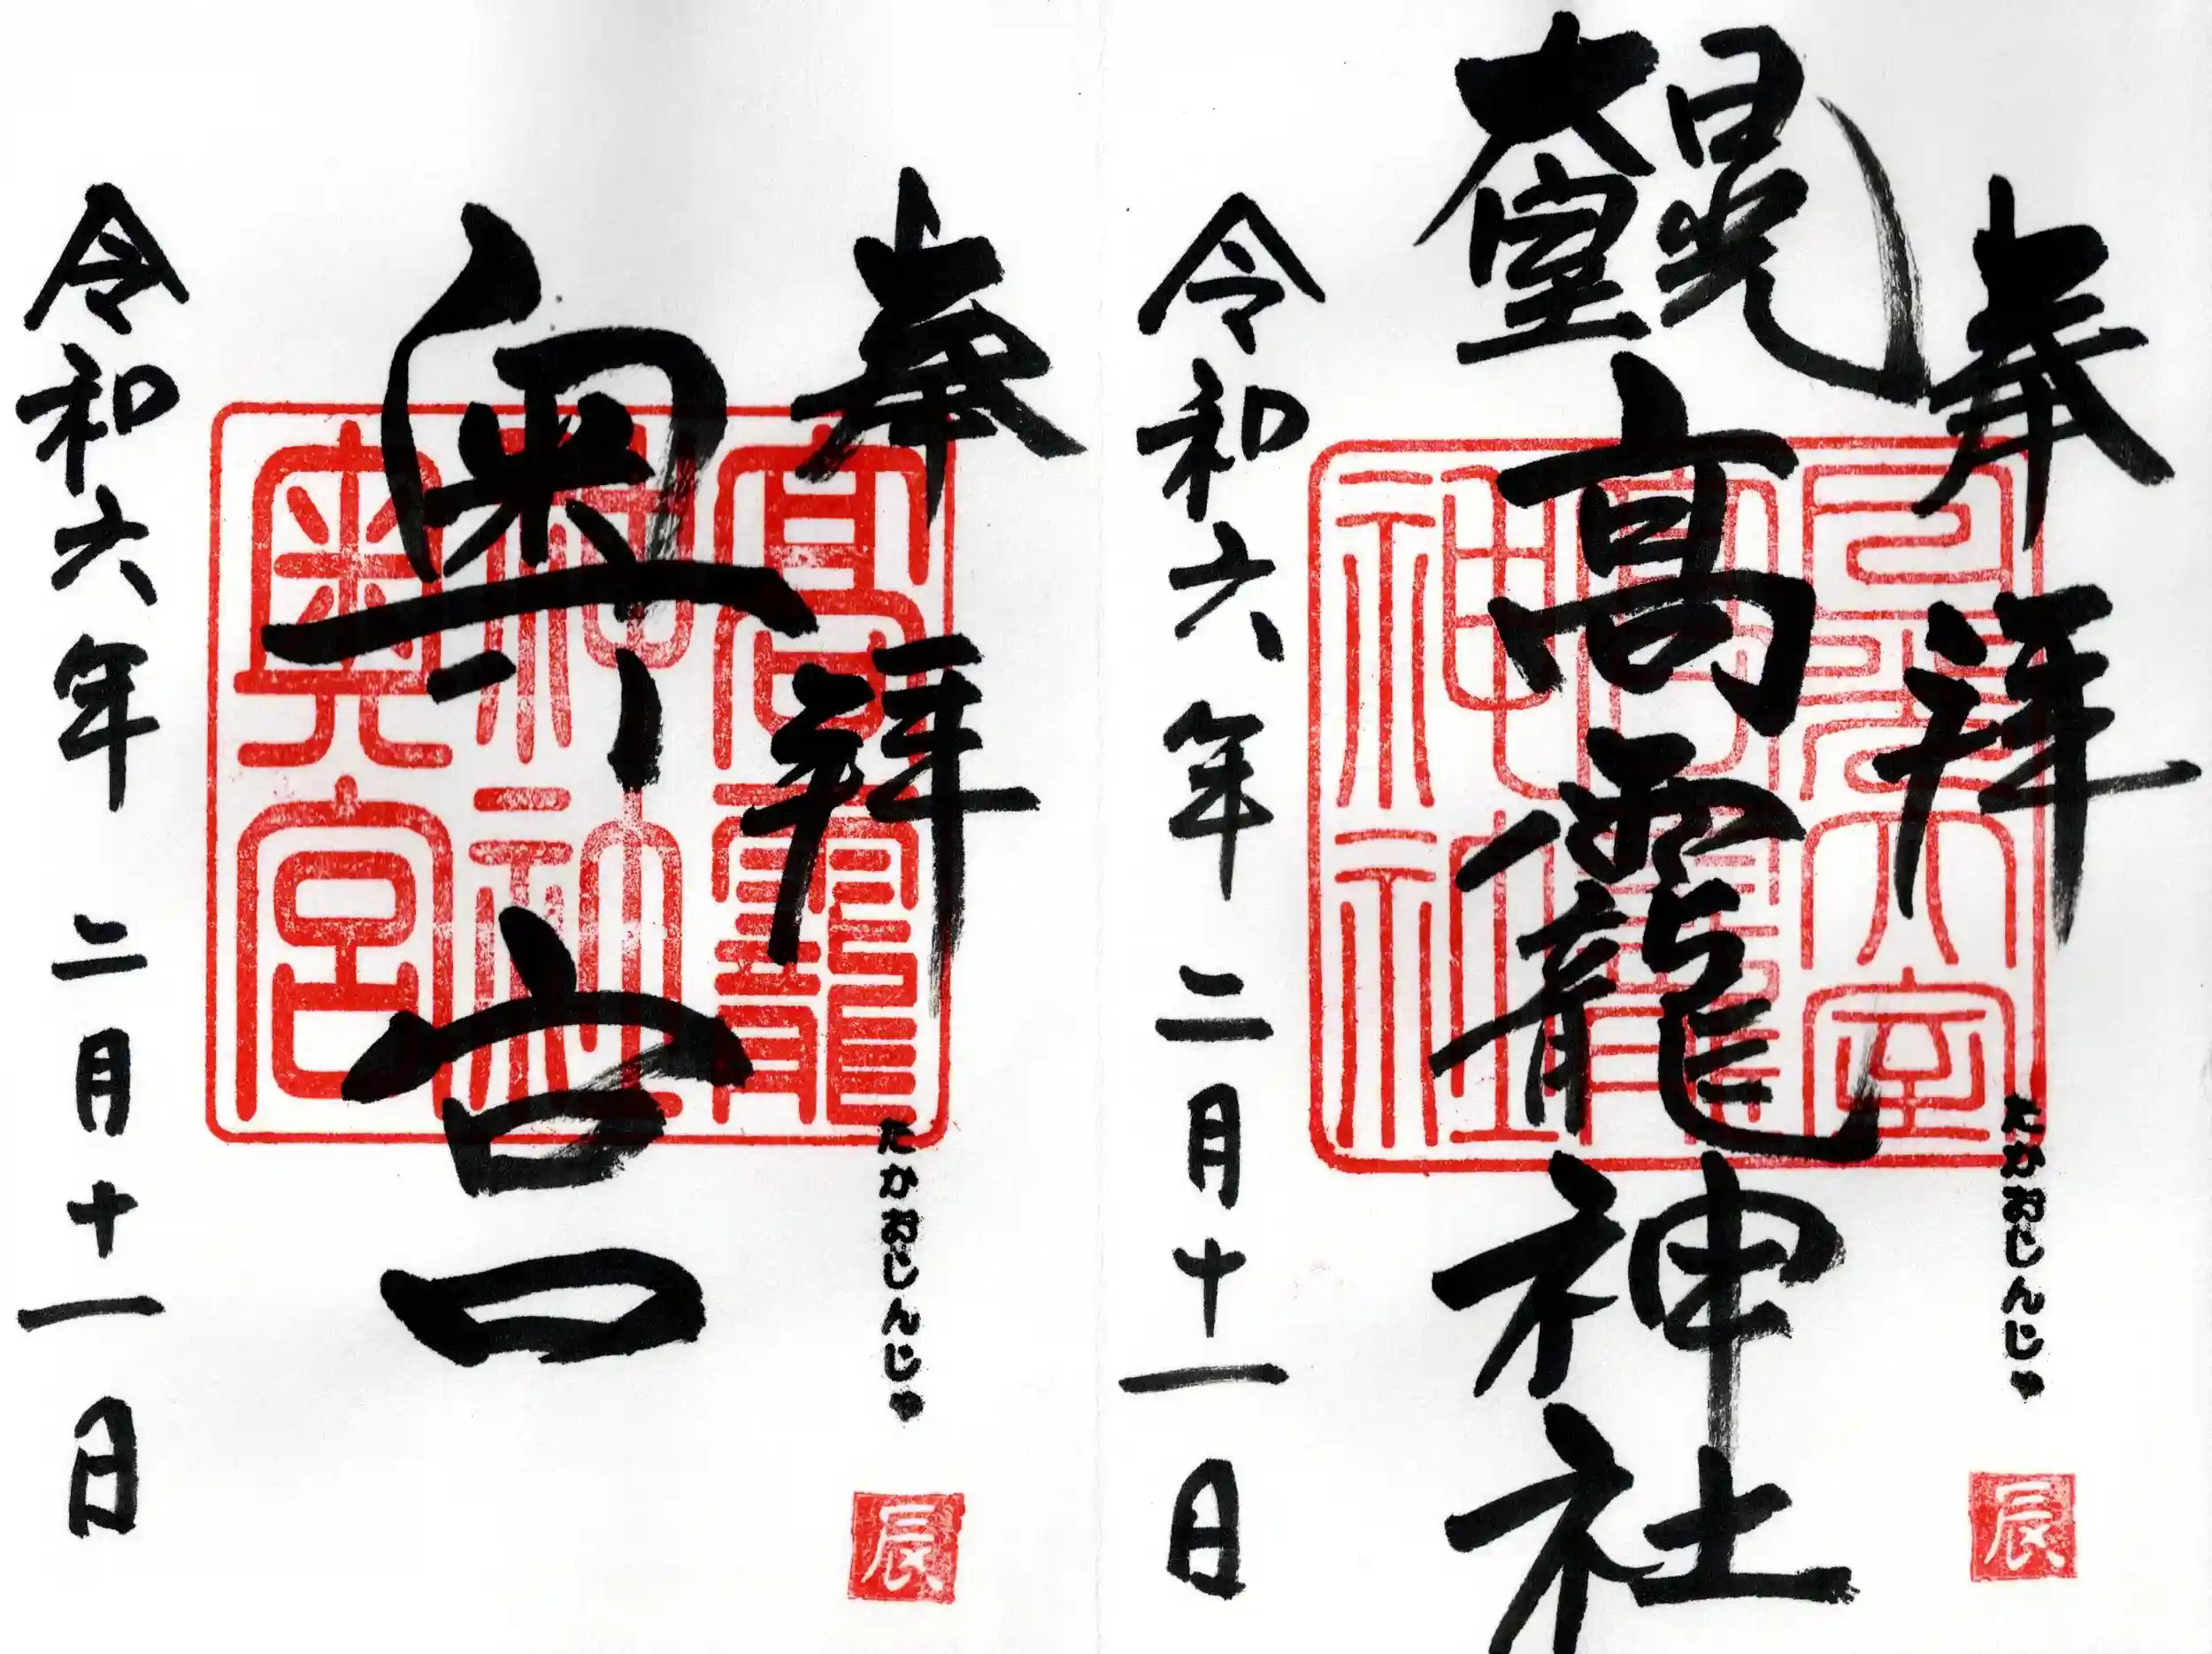 奉拝
日光
大室
高龗神社
たかおじんじゃ
日光大室
高龗
神社
辰
令和六年二月十一日
奉拝
奥宮
たかおじんじゃ
高龗
神社
奥宮
辰
令和六年二月十一日